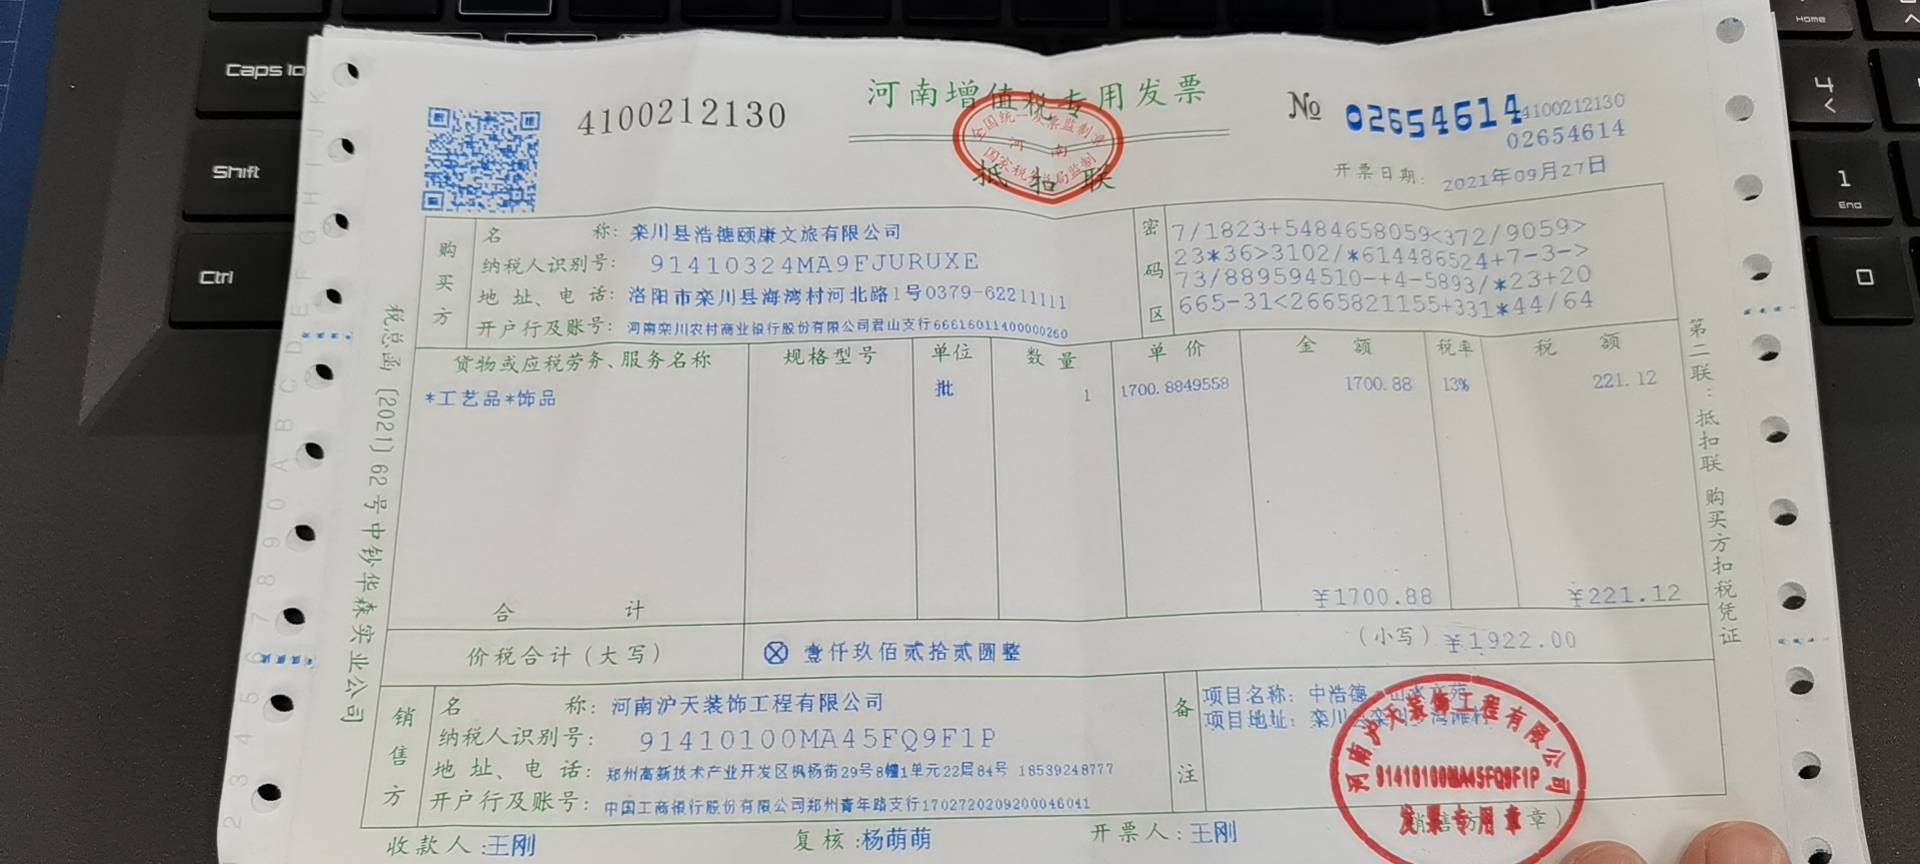 Caps lo
Shift
Ctrl
Home
4
<
1
End
0
4100212130
河南增值税专用发票
全国统一发票监制章
河南
国家税务总局监制
抵扣联
№ 02654614
4100212130
02654614
开票日期: 2021年09月27日
税总函〔2021〕62号中钞华森实业公司
购买方
名称: 栾川县浩德颐康文旅有限公司
纳税人识别号: 91410324MA9FJURUXE
地址、电话: 洛阳市栾川县海湾村河北路1号0379-62211111
开户行及账号: 河南栾川农村商业银行股份有限公司君山支行66616011400000260
密码区
7/1823+5484658059<372/9059>
23*36>3102/*614486524+7-3->
73/889594510-+4-5893/*23+20
665-31<2665821155+331*44/64
货物或应税劳务、服务名称 规格型号 单位 数量 单价 金额 税率 税额
*工艺品*饰品 批 1 1700.8849558 1700.88 13% 221.12
合计 ¥1700.88 ¥221.12
价税合计(大写) ⊗ 壹仟玖佰贰拾贰圆整 (小写) ¥1922.00
销售方
名称: 河南沪天装饰工程有限公司
纳税人识别号: 91410100MA45FQ9F1P
地址、电话: 郑州高新技术产业开发区枫杨街29号8幢1单元22层84号 18539248777
开户行及账号: 中国工商银行股份有限公司郑州青年路支行1702720209200046041
备注
项目名称: 中浩德
项目地址: 栾川县栾川
河南沪天装饰工程有限公司
91410100MA45FQ9F1P
发票专用章
收款人:王刚 复核:杨萌萌 开票人:王刚 章)
第二联:抵扣联 购买方扣税凭证